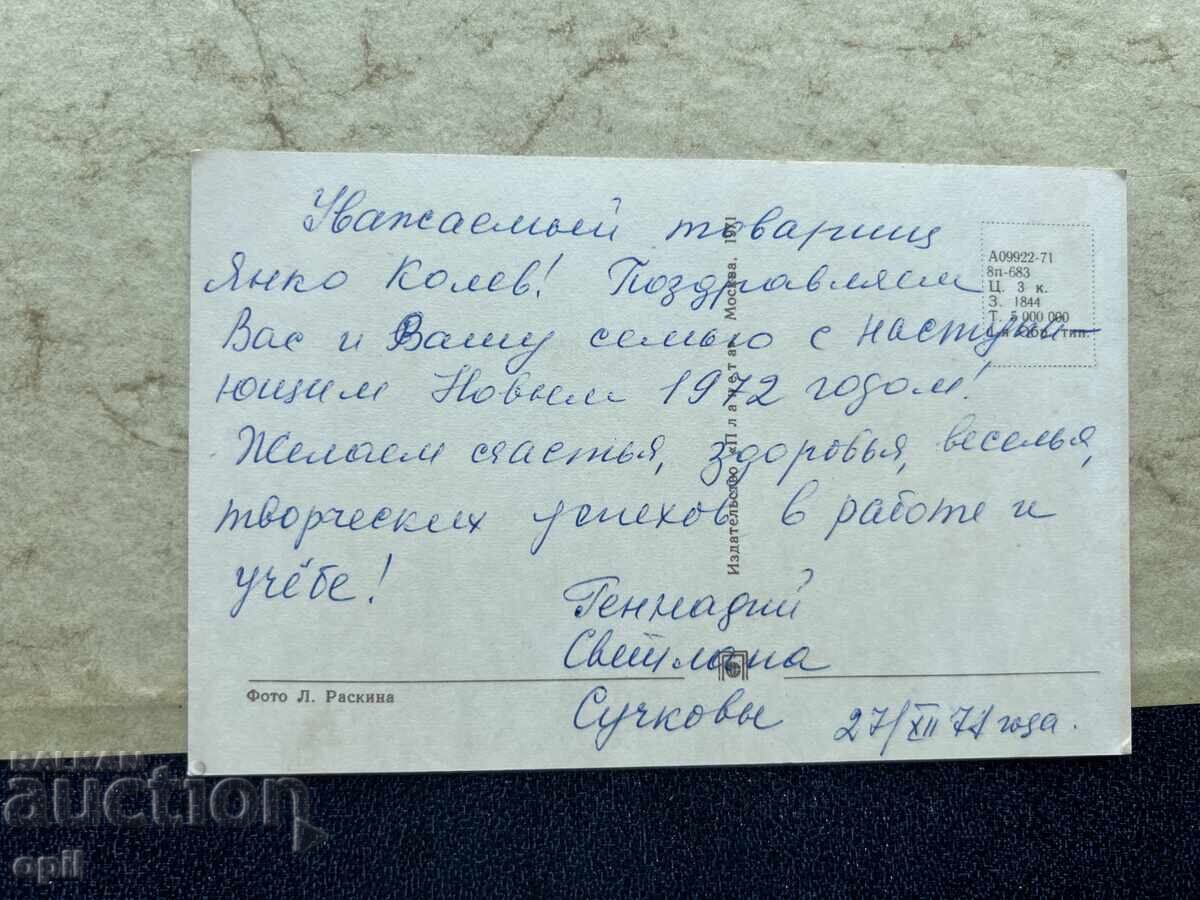 Уважаемый товарищ
Янко Колев! Поздравляем
Вас и Вашу семью с наступа-
ющим Новым 1972 годом!
Желаем счастья, здоровья, веселья,
творческих успехов в работе и
учёбе!
Геннадий
Светлана
Сучковы
27/XII 71 года.
Фото Л. Раскина
Издательство «Планета». Москва, 1971
А09922-71
8п-683
Ц. 3 к.
З. 1844
Т. 5 000 000
обр. тип.
BALKAN
auction
opil